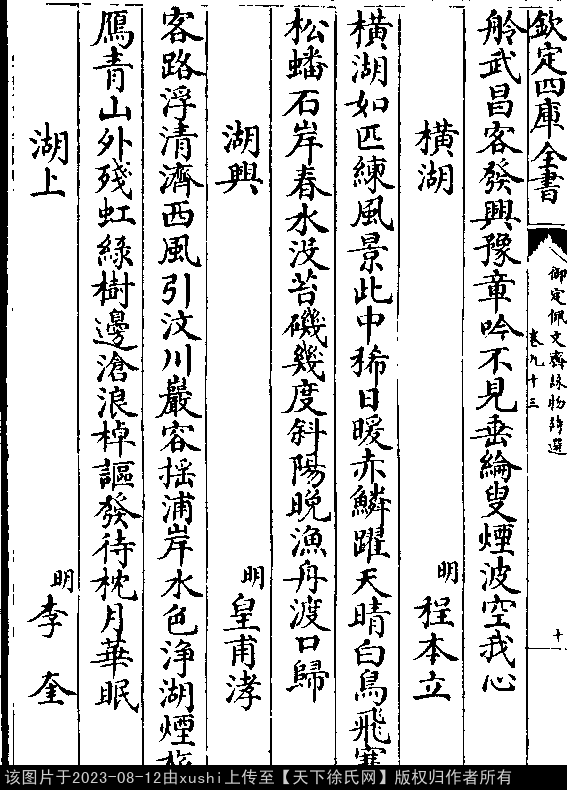 欽定四庫全書
御定佩文齋詠物詩選
卷九十三
十
舲武昌客發興豫章吟不見垂綸叟煙波空我心
橫湖
明
程本立
橫湖如匹練風景此中稀日暖赤鱗躍天晴白鳥飛寒
松蟠石岸春水沒苔磯幾度斜陽晚漁舟渡口歸
湖興
明
皇甫涍
客路浮清濟西風引汶川巖容揺浦岸水色浄湖煙旅
鴈青山外殘虹綠樹邊滄浪棹謳發待枕月華眠
湖上
明
李奎
该图片于2023-08-12由xushi上传至【天下徐氏网】版权归作者所有